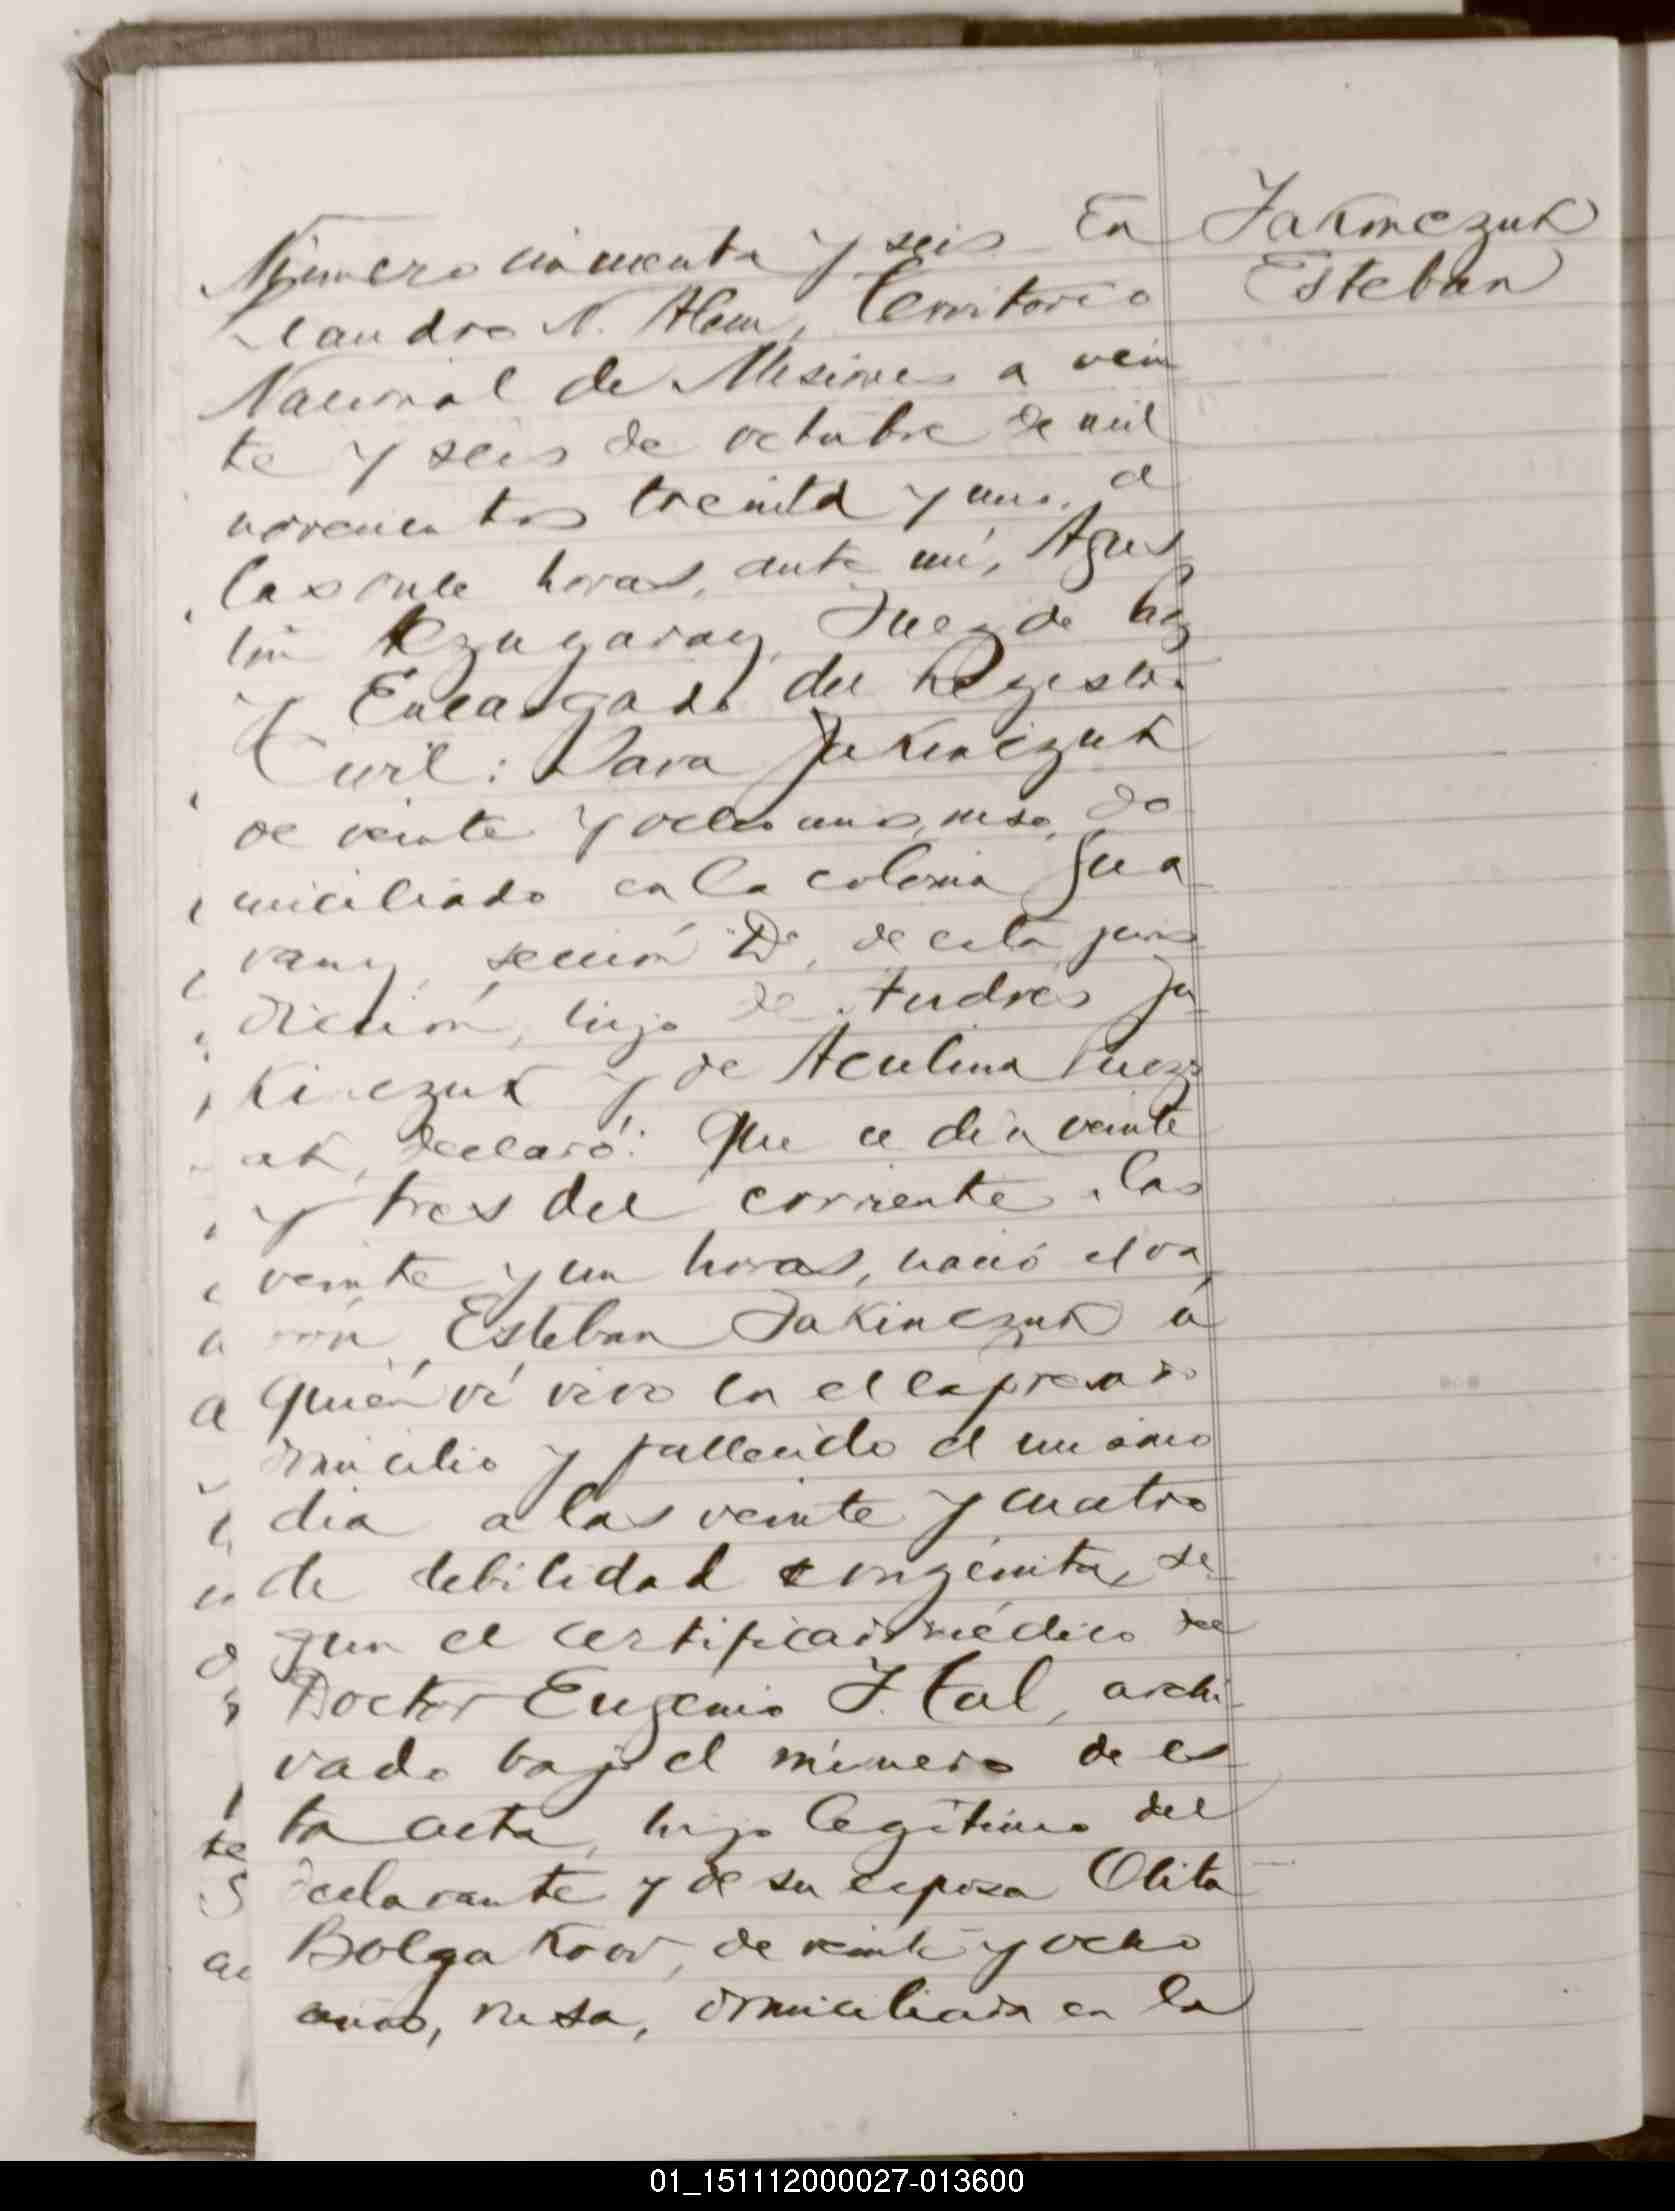 Número cincuenta y seis En
Leandro N. Alem, Territorio
Nacional de Misiones a vein
te y seis de octubre de mil
novecientos treinta y uno, a
las once horas, ante mi, Agus
tín Eyzugaray, Juez de Paz
y Encargado del Registro
Civil: Sava Jakimczuk
de veinte y ocho años, ruso, do
miciliado en la colonia Gua
rany, sección "D", de esta juris
dicción, hijo de Andrés Ja-
kimczuk y de Aculina
declaró: Que el dia veinte
y tres del corriente a las
veinte y un horas, nació el va
rón Esteban Jakimczuk á
quién ví vivo en el expresado
domicilio y fallecido el mismo
dia a las veinte y cuatro
de debilidad congénita, se-
gun el certificado médico del
Doctor Eugenio J. Ital, archi-
vado bajo el número de es-
ta acta, hijo legítimo del
declarante y de su esposa Olita
Bolgakow, de veinte y ocho
años, rusa, domiciliada en la
Jakimczuk
Esteban
te
01_151112000027-013600